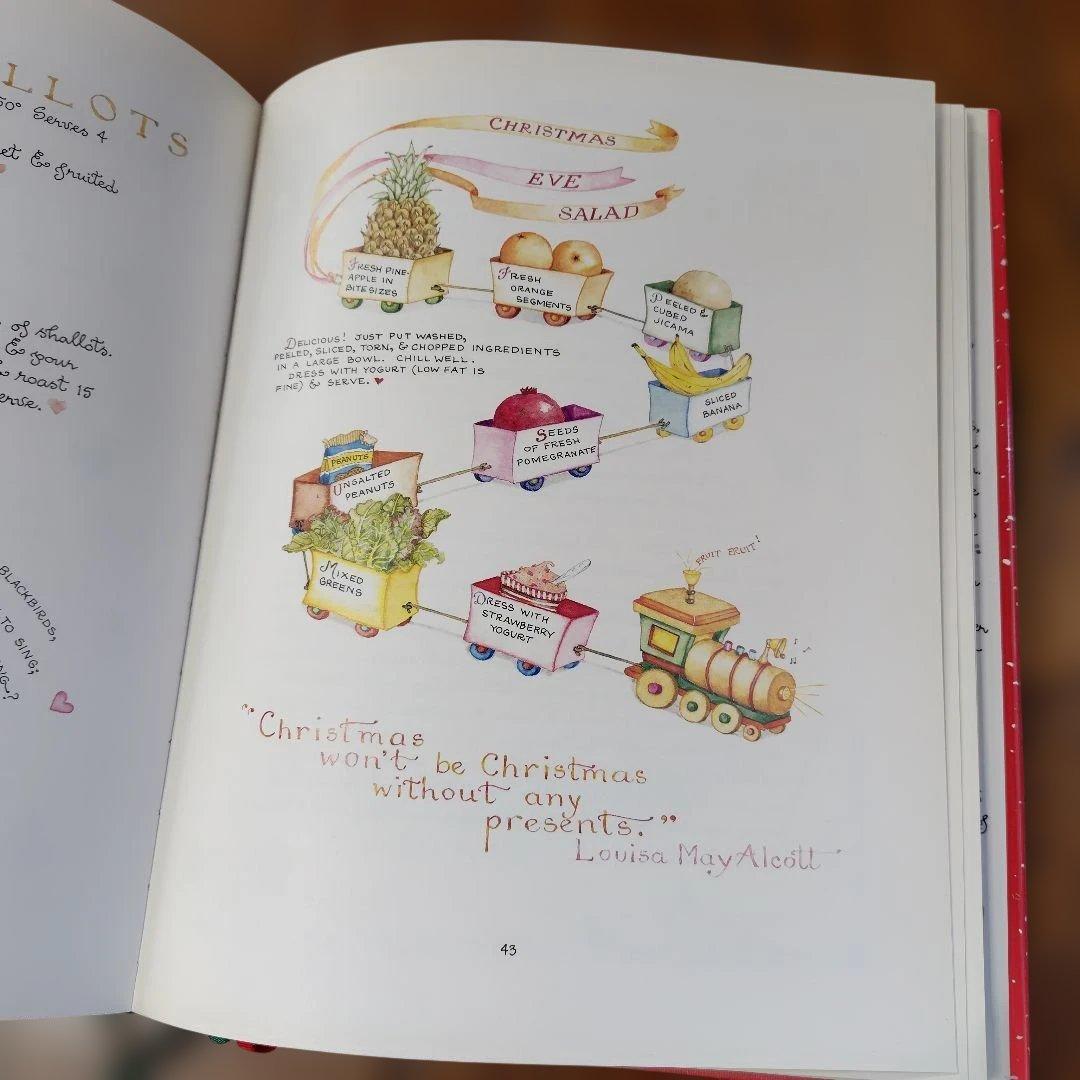 LLOTS
50° Serves 4
et & fruited
of shallots.
& your
roast 15
BLACKBIRDS,
TO SING;
CHRISTMAS
EVE
SALAD
FRESH PINE-
APPLE IN
BITE SIZES
FRESH
ORANGE
SEGMENTS
PEELED &
CUBED
JICAMA
DELICIOUS! JUST PUT WASHED,
PEELED, SLICED, TORN, & CHOPPED INGREDIENTS
IN A LARGE BOWL. CHILL WELL.
DRESS WITH YOGURT (LOW FAT IS
FINE) & SERVE. ♥
SLICED
BANANA
SEEDS
OF FRESH
POMEGRANATE
PEANUTS
UNSALTED
PEANUTS
MIXED
GREENS
DRESS WITH
STRAWBERRY
YOGURT
FRUIT FRUIT!
"Christmas
won't be Christmas
without any
presents."
Louisa May Alcott
43